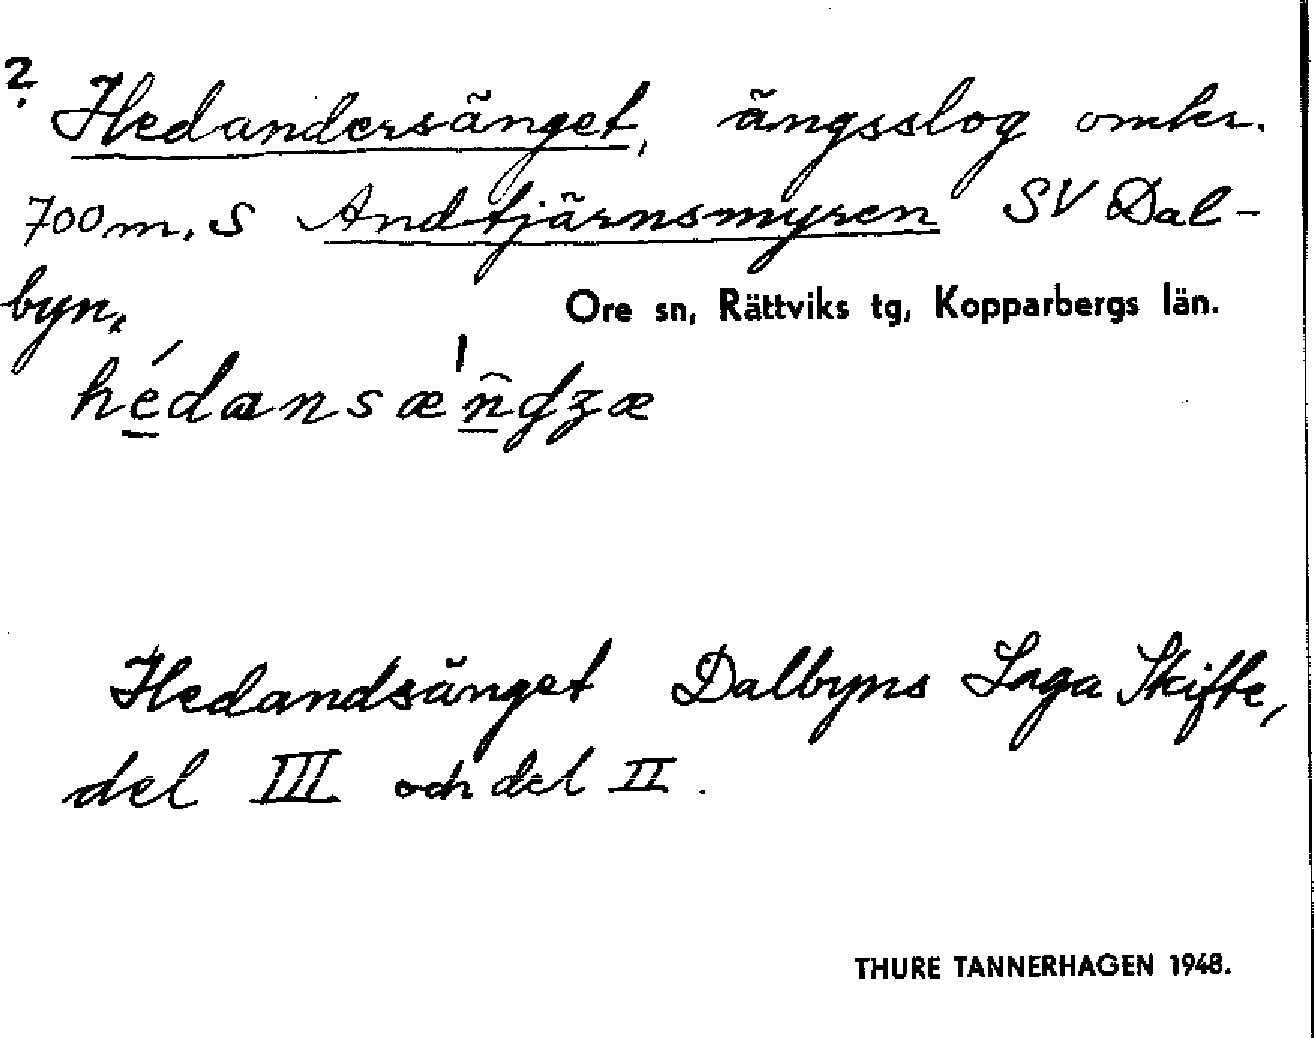 ? Hedandersänget, ängsslog omkr.
700 m. S Andtjärnsmyren SV Dal-
byn.
Ore sn, Rättviks tg, Kopparbergs län.
hédansæ'n̂dʒæ
Hedandsänget Dalbyns Laga Skifte,
del III och del II.
THURE TANNERHAGEN 1948.